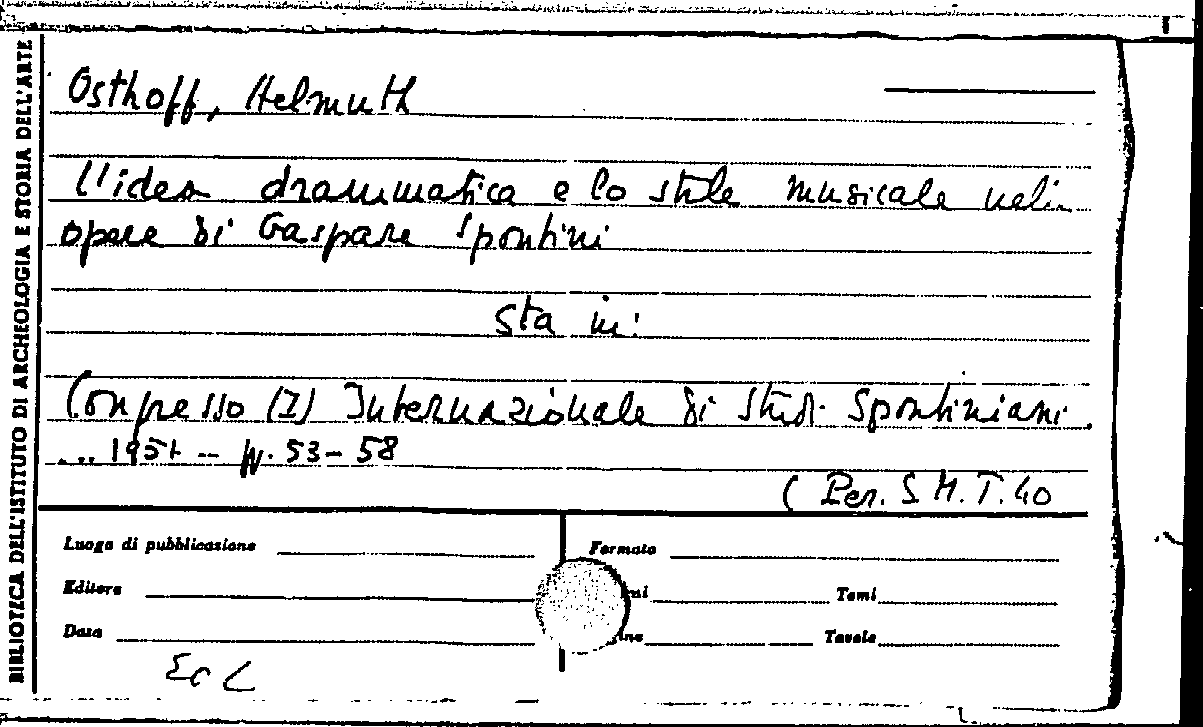 BIBLIOTECA DELL'ISTITUTO DI ARCHEOLOGIA E STORIA DELL'ARTE
Osthoff, Helmuth
L'idea drammatica e lo stile musicale nelle
opere di Gaspare Spontini
Sta in:
Congresso (I) Internazionale di Studi Spontiniani.
... 1951 -- pp. 53-58
( Per. S.M.T. 40
Luogo di pubblicazione Formato
Editore Tomi
Data Tavole